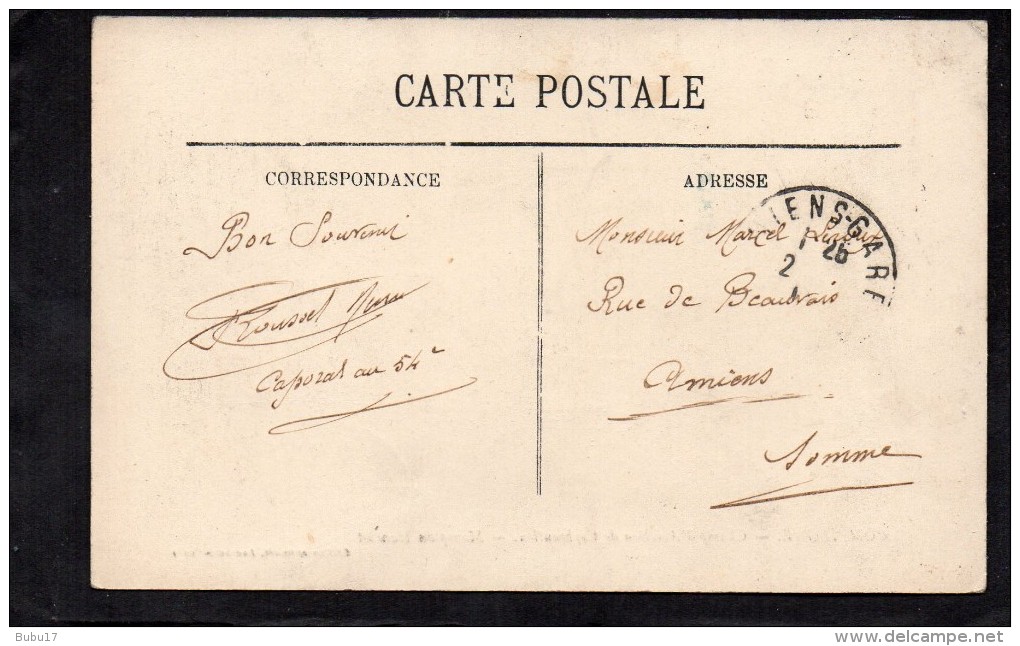 CARTE POSTALE
CORRESPONDANCE
Bon Souvenir
Rousset
Caporal au 54e
ADRESSE
Monsieur Marcel
Rue de Beauvais
Amiens
Somme
IENS-GARE
1
26
2
Bubu17
www.delcampe.net